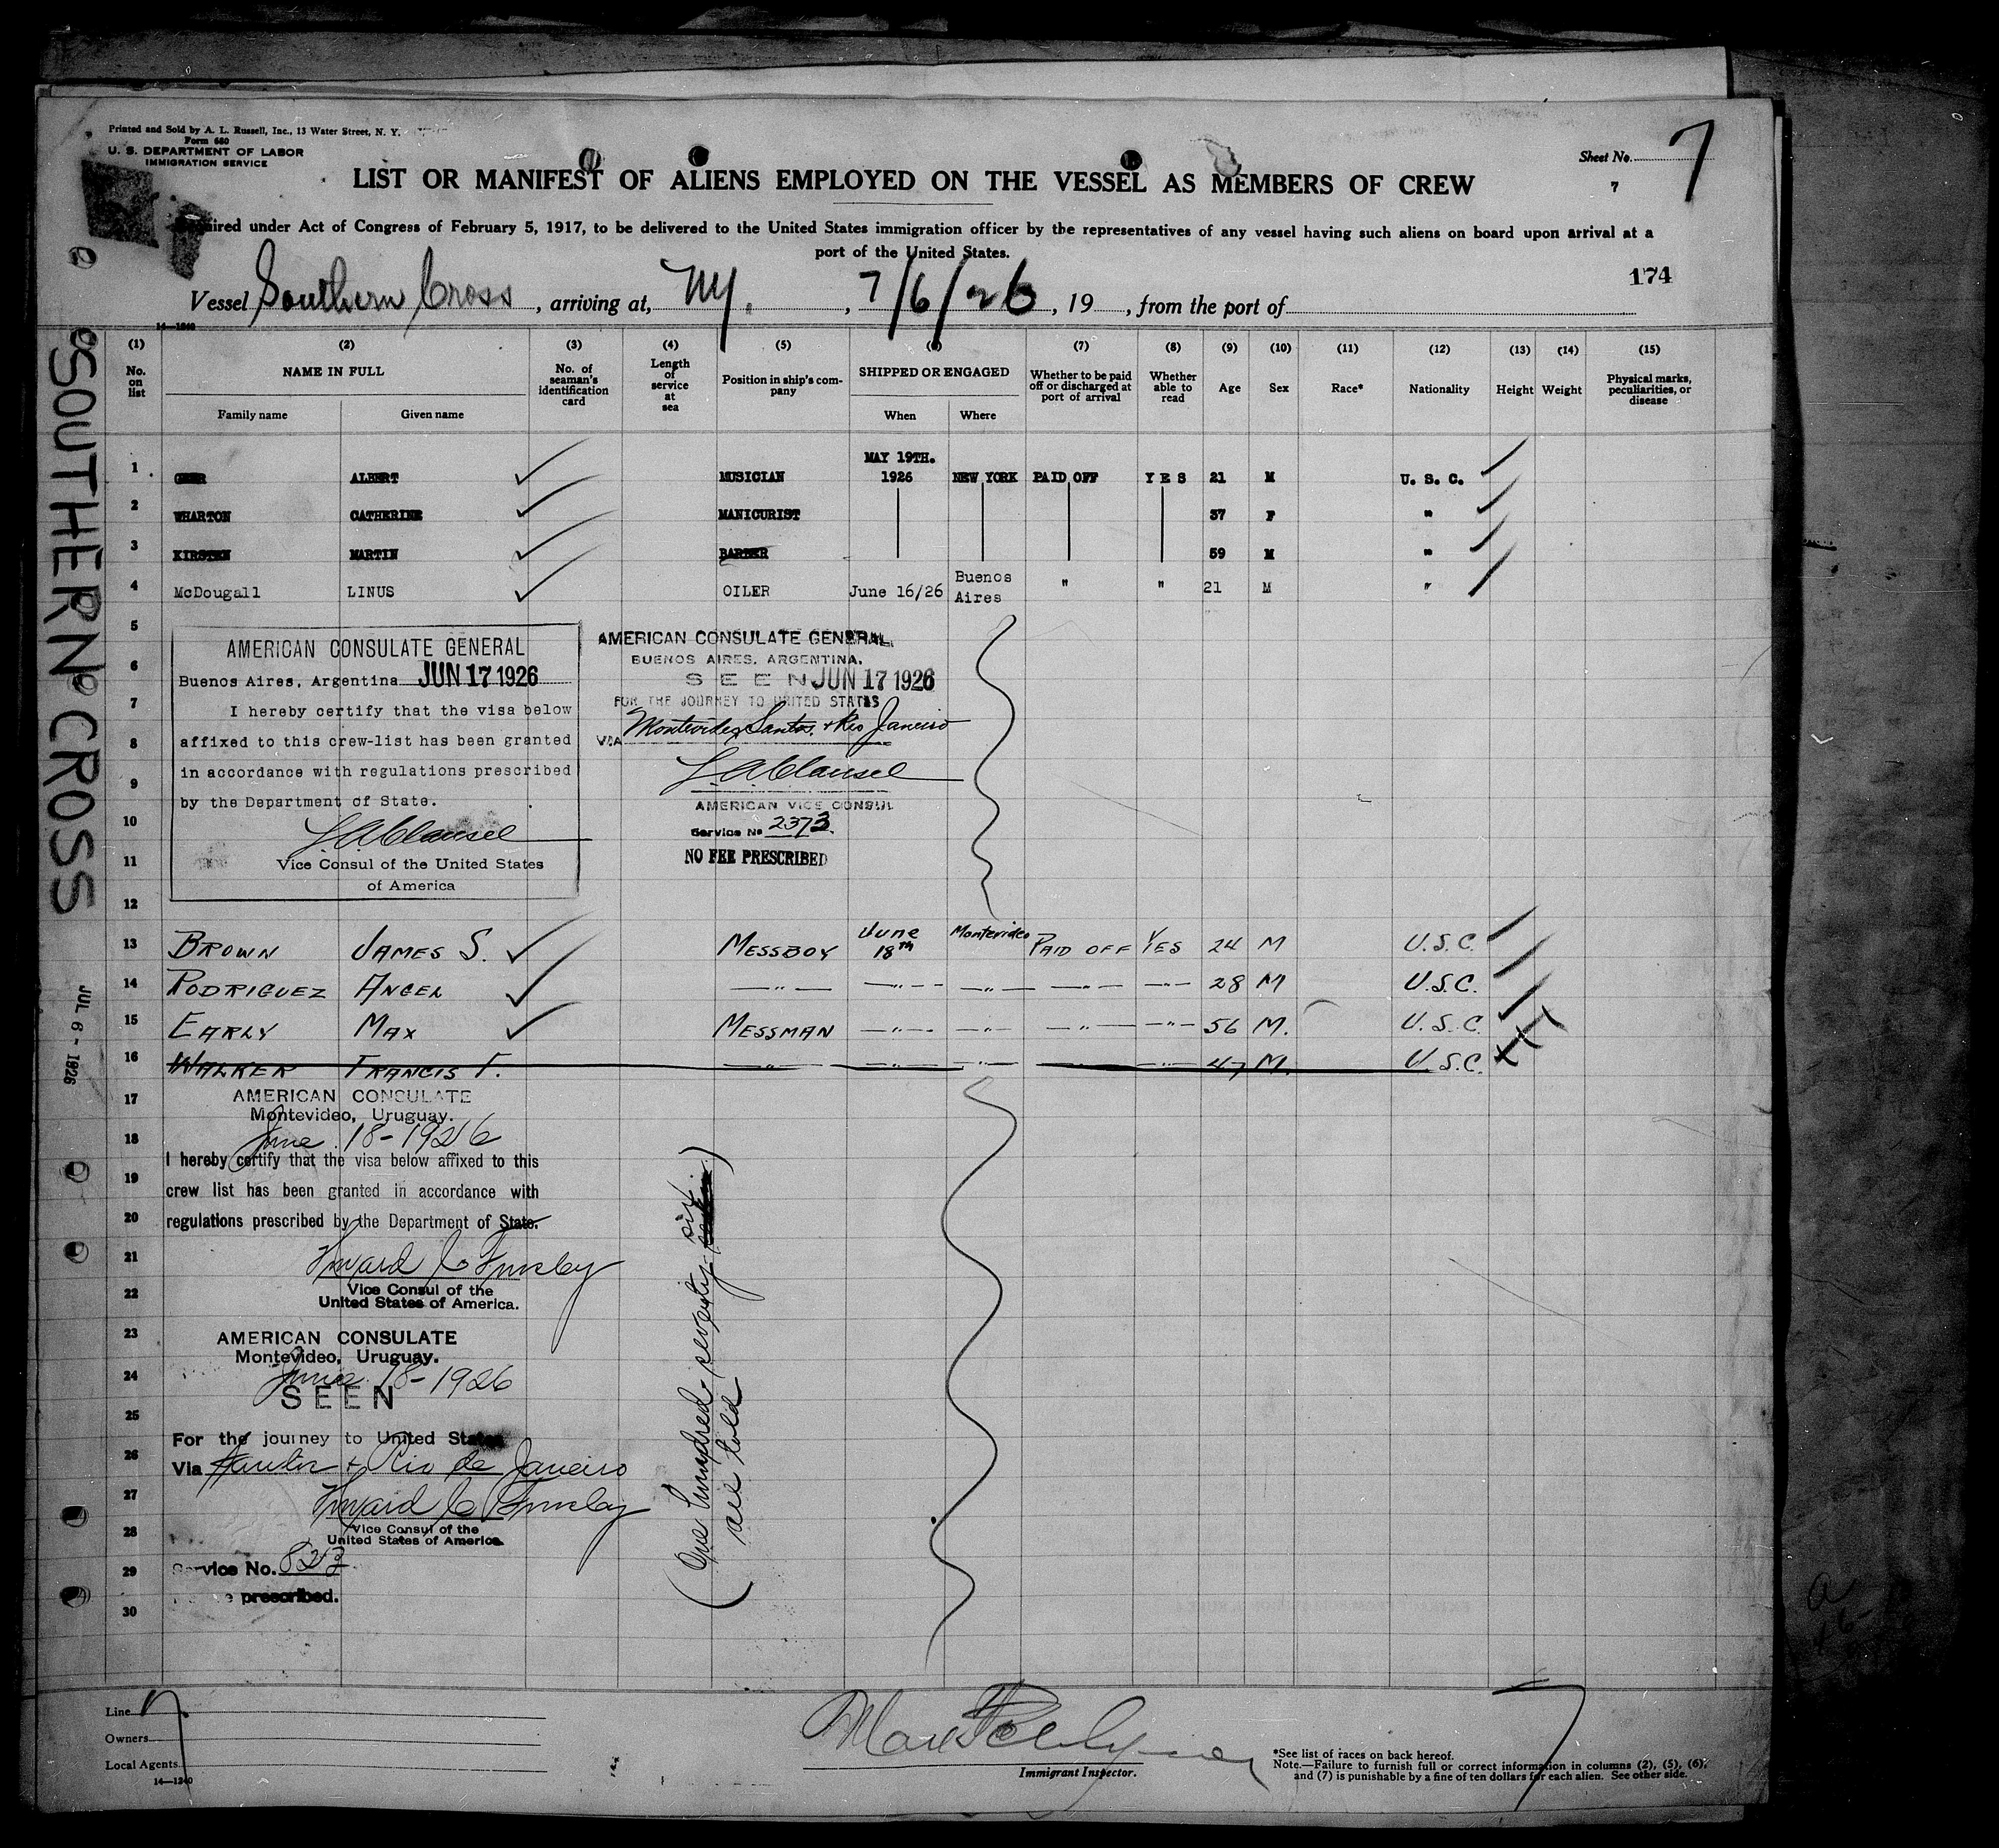 Printed and Sold by A. L. Russell, Inc., 13 Water Street, N. Y.
Form 680
U. S. DEPARTMENT OF LABOR
IMMIGRATION SERVICE
Sheet No. 7
7
LIST OR MANIFEST OF ALIENS EMPLOYED ON THE VESSEL AS MEMBERS OF CREW
under Act of Congress of February 5, 1917, to be delivered to the United States immigration officer by the representatives of any vessel having such aliens on board upon arrival at a
port of the United States.
174
Vessel Southern Cross, arriving at, NY., 7/6/26, 19 , from the port of
14—1240
(1) (2) (3) (4) (5) (6) (7) (8) (9) (10) (11) (12) (13) (14) (15)
No. on list NAME IN FULL No. of seaman's identification card Length of service at sea Position in ship's company SHIPPED OR ENGAGED Whether to be paid off or discharged at port of arrival Whether able to read Age Sex Race* Nationality Height Weight Physical marks, peculiarities, or disease
Family name Given name When Where
1 ALBERT MUSICIAN MAY 19TH. 1926 NEW YORK PAID OFF YES 21 M U. S. C.
2 WHARTON CATHERINE MANICURIST 37 F "
3 KIRSTEN MARTIN BARBER 59 M "
4 McDougall LINUS OILER June 16/26 Buenos Aires " " 21 M "
5
6
7
8
9
10
11
12
AMERICAN CONSULATE GENERAL
Buenos Aires, Argentina JUN 17 1926
I hereby certify that the visa below
affixed to this crew-list has been granted
in accordance with regulations prescribed
by the Department of State.
Vice Consul of the United States
of America
AMERICAN CONSULATE GENERAL
BUENOS AIRES, ARGENTINA.
SEEN JUN 17 1926
FOR THE JOURNEY TO UNITED STATES
VIA Montevideo, Santos, + Rio Janeiro
AMERICAN VICE CONSUL
Service No 2373
NO FEE PRESCRIBED
13 BROWN JAMES S. MESSBOY June 18th Montevideo PAID OFF YES 24 M U.S.C.
14 RODRIGUEZ ANGEL —"— —"— —"— —"— —"— 28 M U.S.C.
15 EARLY MAX MESSMAN —"— —"— —"— —"— 56 M. U.S.C.
16 WALKER FRANCIS F. —"— —"— —"— —"— —"— 47 M. U.S.C.
17
18
19
20
21
22
23
24
25
26
27
28
29
30
AMERICAN CONSULATE
Montevideo, Uruguay.
June 18-1926
I hereby certify that the visa below affixed to this
crew list has been granted in accordance with
regulations prescribed by the Department of State.
Vice Consul of the
United States of America.
AMERICAN CONSULATE
Montevideo, Uruguay.
June 18-1926
SEEN
For the journey to United States
Via Santos + Rio de Janeiro
Vice Consul of the
United States of America
Service No. 823
prescribed.
(One hundred-seventy-six
all told)
SOUTHERN CROSS
JUL 6 - 1926
Line
Owners
Local Agents
14—1240
7
Immigrant Inspector.
*See list of races on back hereof.
Note.—Failure to furnish full or correct information in columns (2), (5), (6),
and (7) is punishable by a fine of ten dollars for each alien. See other side.
7